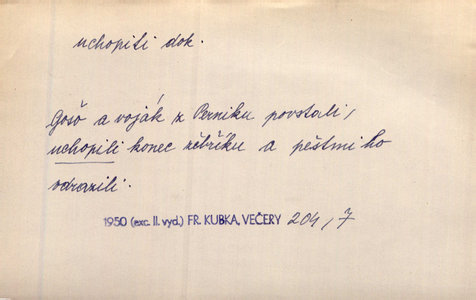 uchopiti dok.
Gošo a voják z Perniku povstali,
uchopili konec žebříku a pěstmi ho
odrazili.
1950 (exc. II. vyd.) FR. KUBKA, VEČERY 204, 7